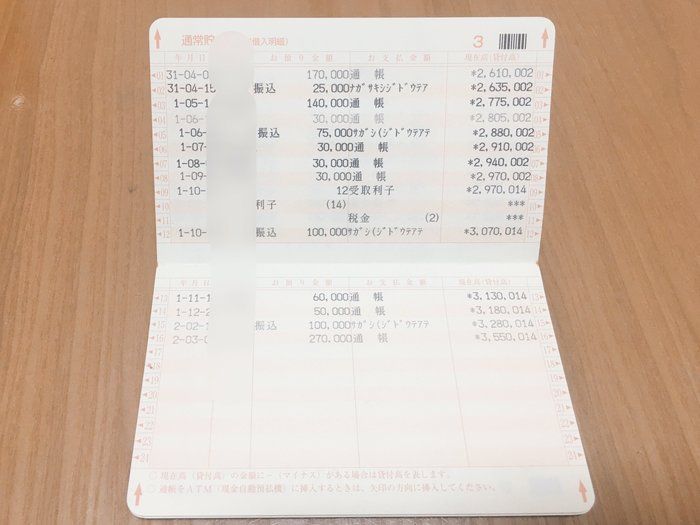 通常貯 借入明細)
3
年月日 お預り金額 お支払金額 現在高(貸付高)
01 31-04-0 170,000通 帳 *2,610,002 01
02 31-04-15 振込 25,000ナガサキシジドウテア *2,635,002 02
03 1-05-1 140,000通 帳 *2,775,002 03
04 1-06- 30,000通 帳 *2,805,002 04
05 1-06- 振込 75,000サガシ(ジドウテアテ *2,880,002 05
06 1-07- 30,000通 帳 *2,910,002 06
07 1-08- 30,000通 帳 *2,940,002 07
08 1-09- 30,000通 帳 *2,970,002 08
09 1-10- 12受取利子 *2,970,014 09
10 利子 (14) *** 10
11 税金 (2) *** 11
12 1-10- 振込 100,000サガシ(ジドウテアテ *3,070,014 12
年月日 お預り金額 お支払金額 現在高(貸付高)
13 1-11-1 60,000通 帳 *3,130,014 13
14 1-12-2 50,000通 帳 *3,180,014 14
15 2-02-1 振込 100,000サガシ(ジドウテアテ *3,280,014 15
16 2-03-0 270,000通 帳 *3,550,014 16
17 17
18 18
19 19
20 20
21 21
22 22
23 23
24 24
○現在高(貸付高)の金額に-(マイナス)がある場合は貸付高を表します。
○通帳をATM(現金自動預払機)に挿入するときは、矢印の方向に挿入してください。